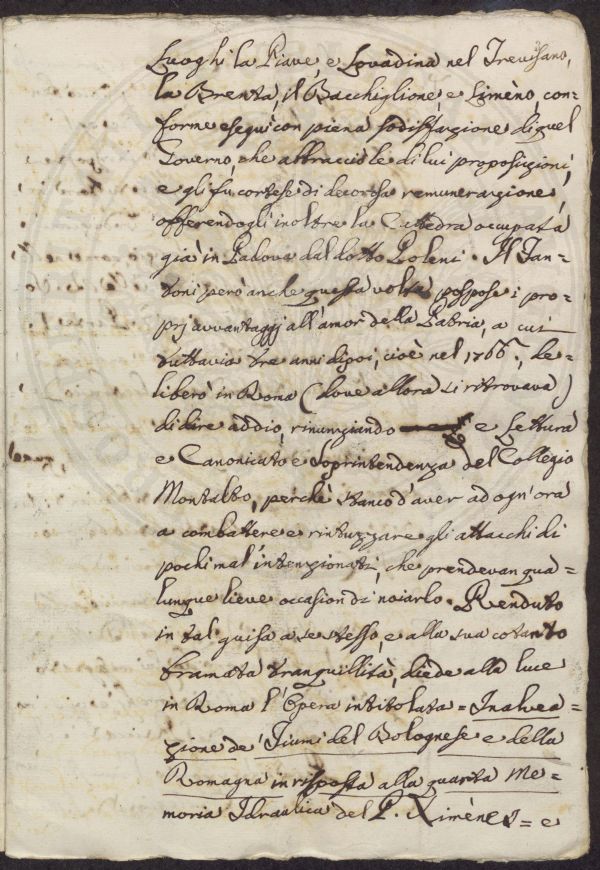 Luoghi la Piave, e Lovadina nel Trevisano,
la Brenta, il Bacchiglione, e Limèno, con=
forme eseguì con piena sodisfazione di quel
Governo, che abbracciò le di lui proposizioni,
e gli fù cortese di decorosa remunerazione,
offerendogli inoltre la Cattedra occupata
già in Padova dal dotto Poleni. Il Fan=
toni però anche questa volta pospose i pro=
prj avvantaggj all'amor della Patria, a cui
tuttavia tre anni dipoi, cioè nel 1766., de=
liberò in Roma (dove allora si ritrovava)
di dire addio, rinunziando e Lettura
e Canonicato e Soprintendenza del Collegio
Montalto, perchè stanco d'aver ad ogn'ora
a combattere e rintuzzare gli attacchi di
pochi mal'intenzionati, che prendevan qua=
lunque lieve occasion di noiarlo. Renduto
in tal guisa a se stesso, e alla sua cotanto
bramata tranquillità, diede alla luce
in Roma l'Opera intitolata = Inalvea=
zione de' Fiumi del Bolognese e della
Romagna in risposta alla quarta Me=
moria Idraulica del P. Ximènes = e